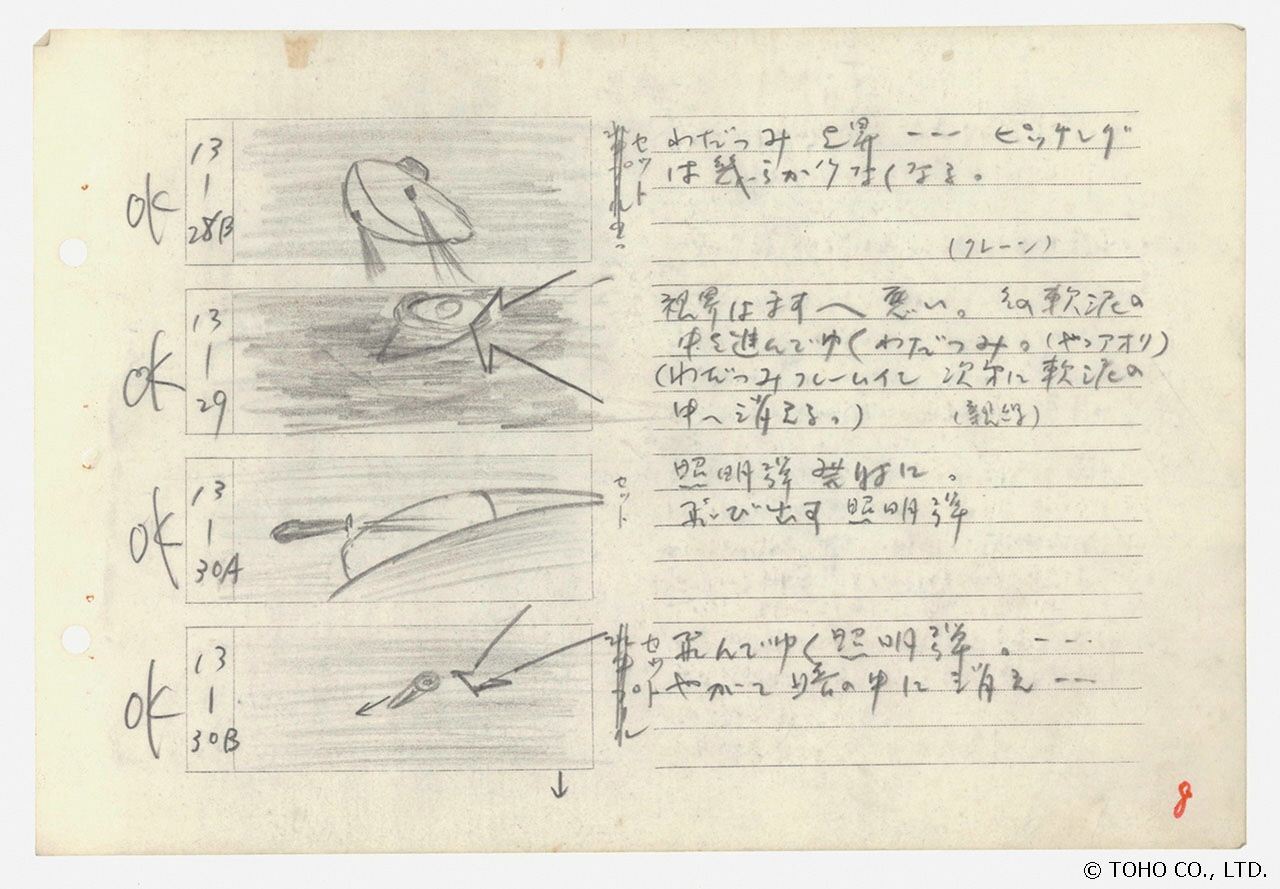 OK
13
1
28B
セット
わだつみ 上昇 --- ピッチング
は幾らか少なくなる。
(クレーン)
OK
13
1
29
視界はますへ 悪い。その軟泥の
中を進んでゆくわだつみ。(ややアオリ)
(わだつみフレームイン 次第に軟泥の
中へ消える。)
OK
13
1
30A
セット
照明弾 発射に。
飛び出す 照明弾
OK
13
1
30B
セット
飛んでゆく照明弾。---
やがて 暗の中に消え --
8
© TOHO CO., LTD.